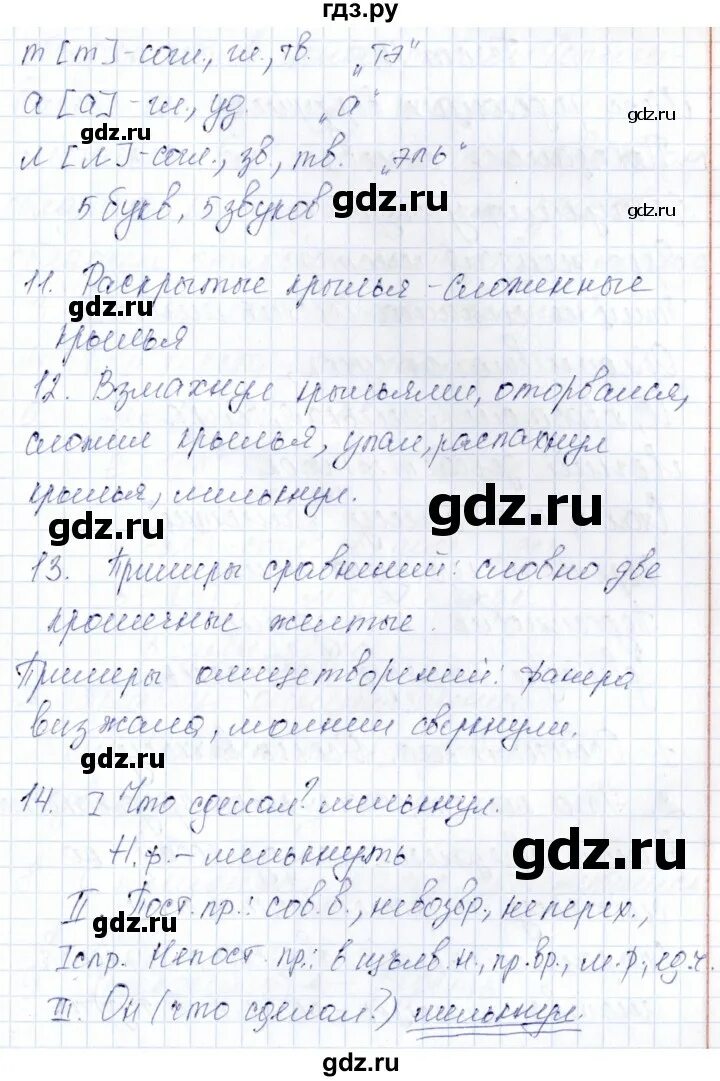 гдз.ру
т [т] - согл., гл., тв. "тэ"
а [а] - гл., уд. "а"
gdz.ru
gdz.ru
л [л] - согл., зв., тв. "эль"
5 букв, 5 звуков
gdz.ru
gdz.ru
11. Раскрытые крылья - сложенные
gdz.ru
крылья
12. Взмахнул крыльями, оторвался,
сложил крылья, упал, распахнул
крылья, мелькнул.
gdz.ru
gdz.ru
13. Примеры сравнений: словно две
крошечные желтые.
Примеры олицетворений: фанера
визжала, молнии сверкнули.
gdz.ru
14. I Что сделал? мелькнул.
Н.ф. - мелькнуть
gdz.ru
II Пост. пр.: сов.в., невозвр., неперех.,
gdz.ru
I спр. Непост. пр.: в изъяв.н., пр.вр., м.р., ед.ч.
III. Он (что сделал?) мелькнул.
gdz.ru
gdz.ru